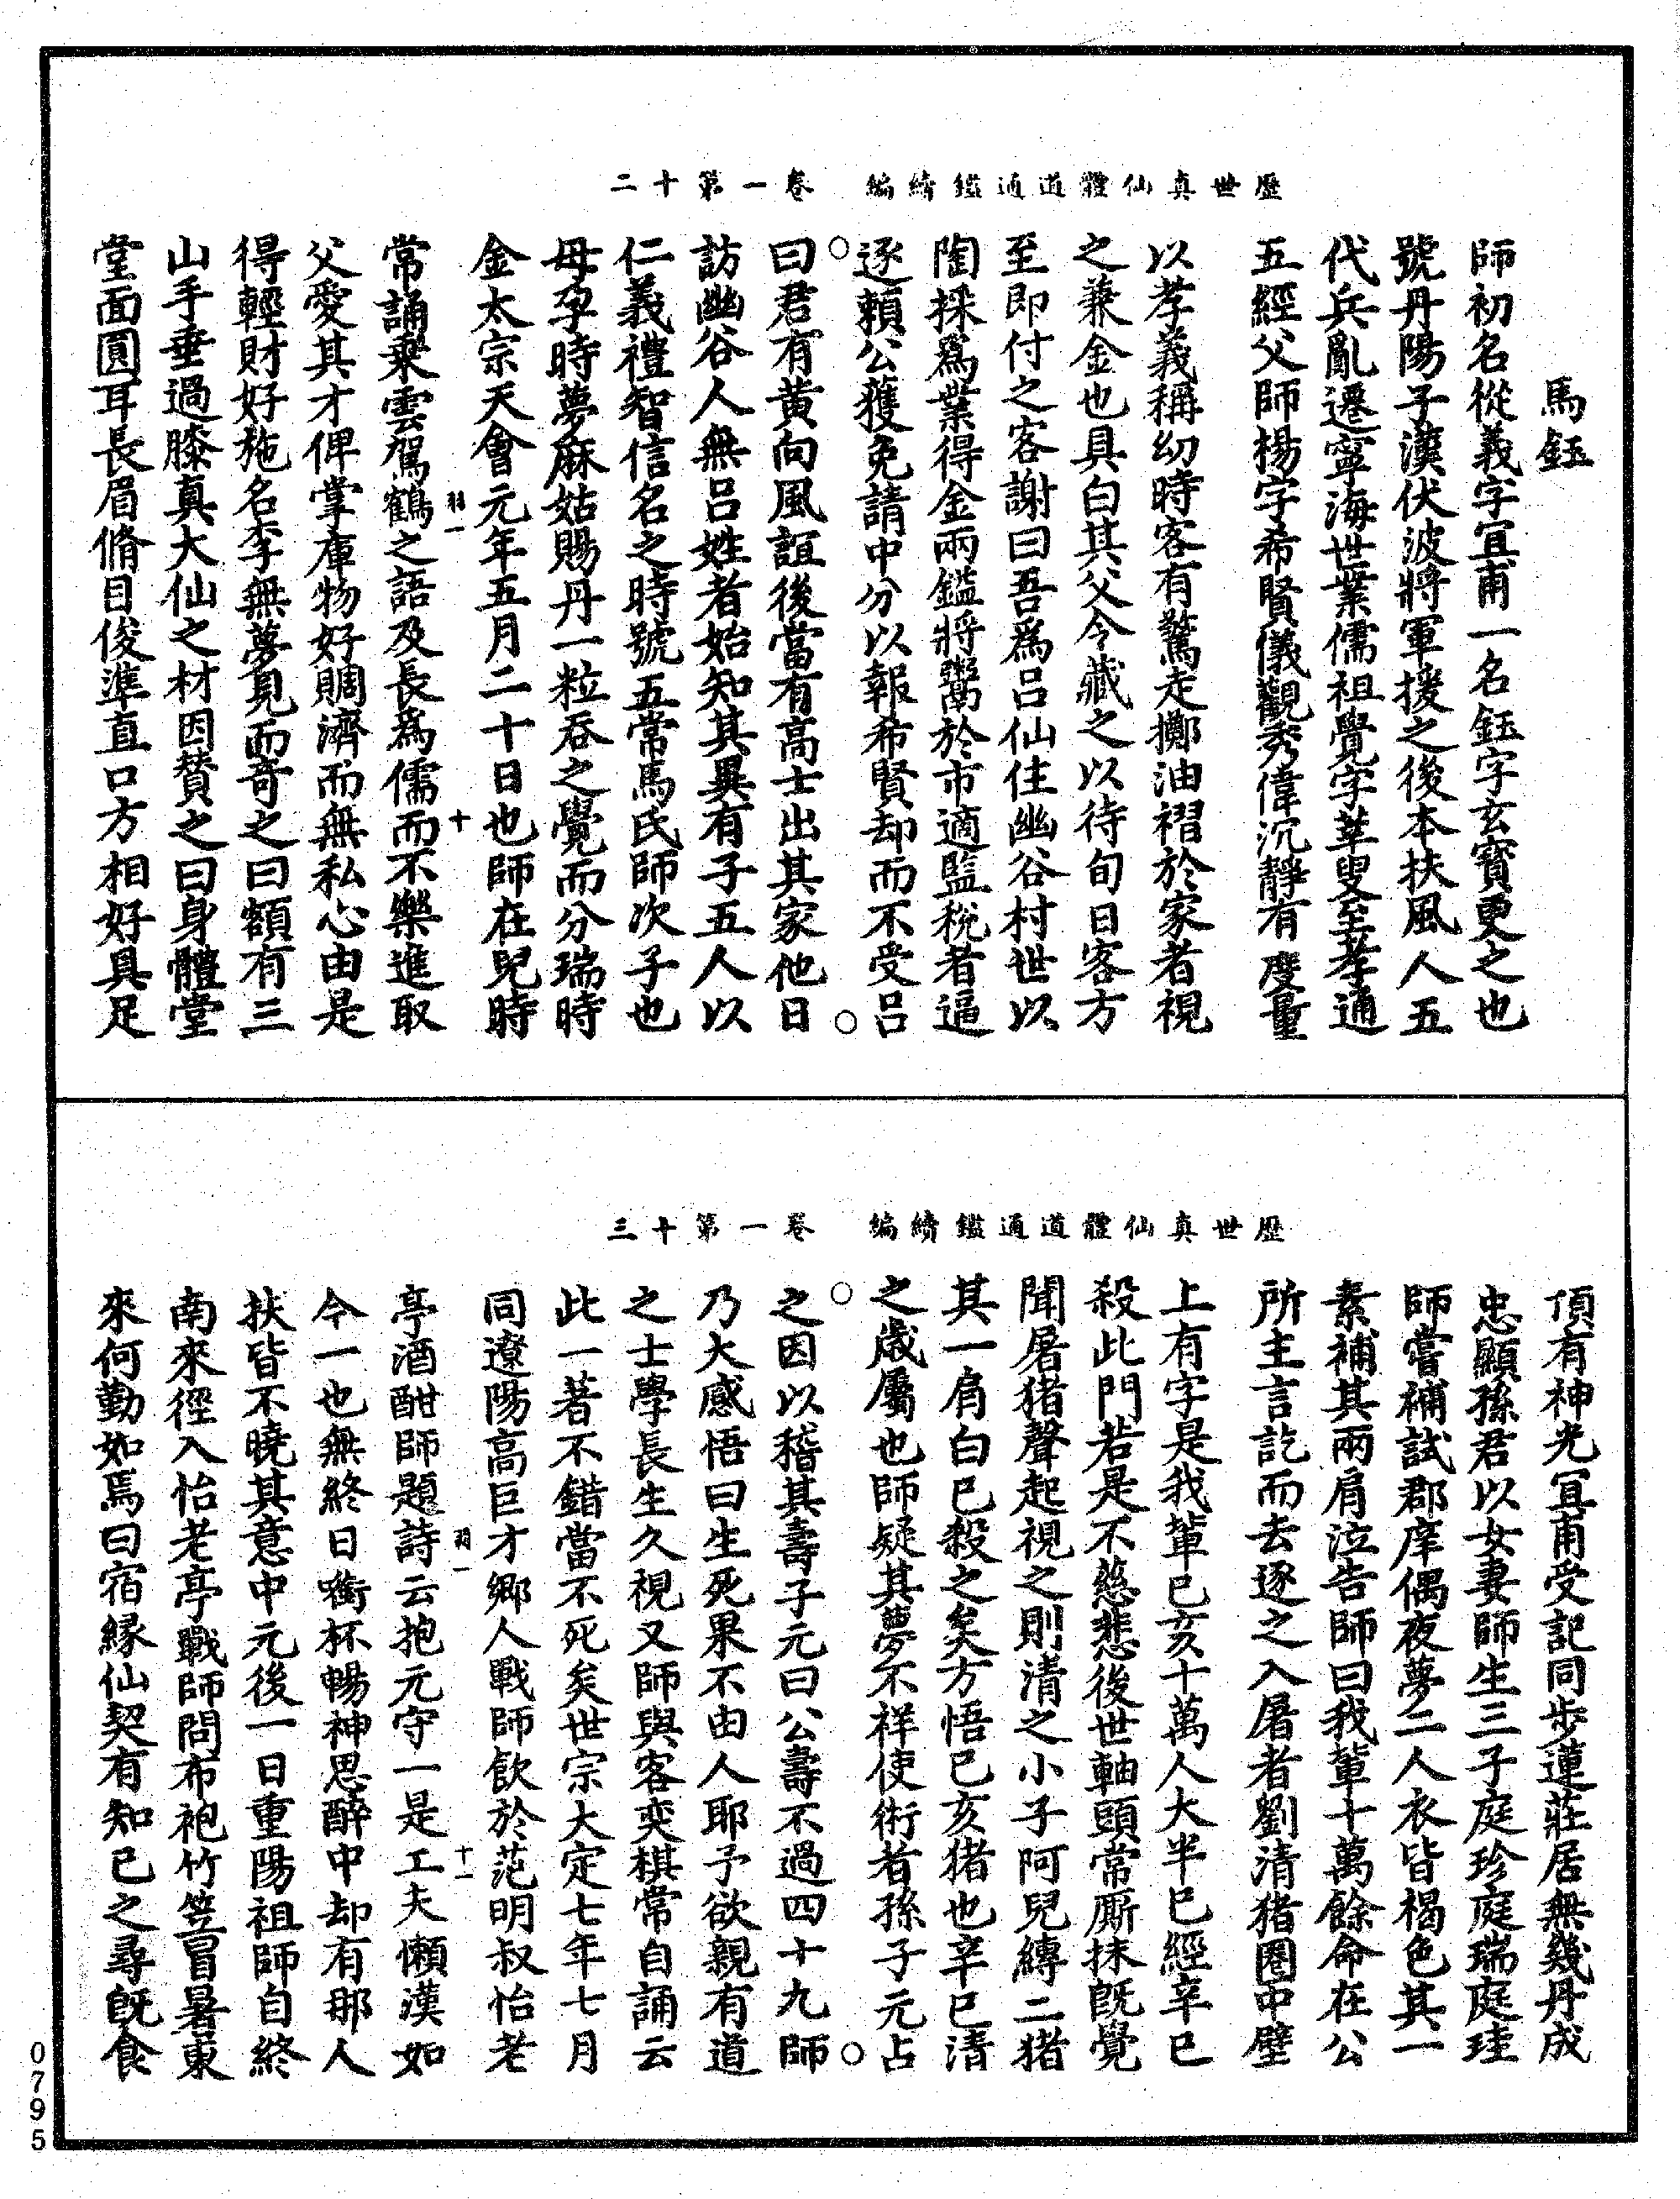 歷世真仙體道通鑑續編　卷一第十二
馬鈺
師初名從義字宜甫一名鈺字玄寶更之也
號丹陽子漢伏波將軍援之後本扶風人五
代兵亂遷寧海世業儒祖覺字莘叟至孝通
五經父師楊字希賢儀觀秀偉沉靜有度量
以孝義稱幼時客有驚走擲油褶於家者視
之兼金也具白其父令藏之以待旬日客方
至即付之客謝曰吾爲呂仙住幽谷村世以
陶採爲業得金兩鎰將鬻於市適監稅者逼
逐賴公獲免請中分以報希賢却而不受呂
曰君有黃向風誼後當有高士出其家他日
訪幽谷人無呂姓者始知其異有子五人以
仁義禮智信名之時號五常馬氏師次子也
母孕時夢麻姑賜丹一粒吞之覺而分瑞時
金太宗天會元年五月二十日也師在兒時
羽一　十
常誦乘雲駕鶴之語及長爲儒而不樂進取
父愛其才俾掌庫物好賙濟而無私心由是
得輕財好施名李無夢見而奇之曰額有三
山手垂過膝真大仙之材因贊之曰身體堂
堂面圓耳長眉脩目俊準直口方相好具足
歷世真仙體道通鑑續編　卷一第十三
頂有神光宜甫受記同步蓮莊居無幾丹成
忠顯孫君以女妻師生三子庭珍庭瑞庭珪
師嘗補試郡庠偶夜夢二人衣皆褐色其一
素補其兩肩泣告師曰我輩十萬餘命在公
所主言訖而去逐之入屠者劉清猪圈中壁
上有字是我輩巳亥十萬人大半巳經辛巳
殺此門若是不慈悲後世軸頭常厮抹旣覺
聞屠猪聲起視之則清之小子阿兒縛二猪
其一肩白巳殺之矣方悟巳亥猪也辛巳清
之歲屬也師疑其夢不祥使術者孫子元占
之因以稽其壽子元曰公壽不過四十九師
乃大感悟曰生死果不由人耶予欲親有道
之士學長生久視又師與客奕棋常自誦云
此一著不錯當不死矣世宗大定七年七月
同遼陽高巨才鄉人戰師飲於范明叔怡老
羽一　十一
亭酒酣師題詩云抱元守一是工夫懶漢如
今一也無終日啣杯暢神思醉中却有那人
扶皆不曉其意中元後一日重陽祖師自終
南來徑入怡老亭戰師問布袍竹笠冒暑東
來何勤如焉曰宿緣仙契有知巳之尋旣食
0795